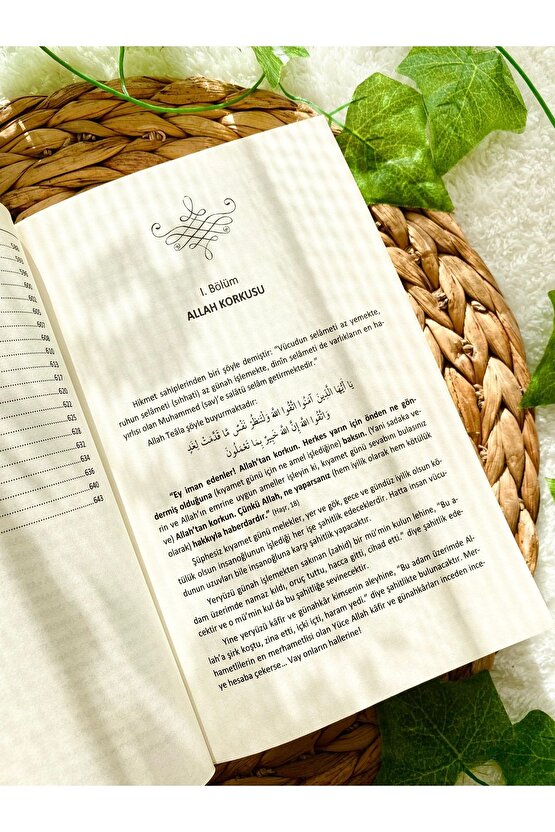 588
594
596
600
602
605
631
637
617
620
625
632
634
636
640
643
I. Bölüm
ALLAH KORKUSU
Hikmet sahiplerinden biri şöyle demiştir: "Vücudun selâmeti az yemekte,
ruhun selâmeti (sıhhati) az günah işlemekte, dînîn selâmeti de varlıkların en ha-
yırlısı olan Muhammed (sav)'e salâtü selâm getirmektedir."
Allah Teâla şöyle buyurmaktadır:
يَا أَيُّهَا الَّذِينَ آمَنُوا اتَّقُوا اللَّهَ وَلْتَنظُرْ نَفْسٌ مَّا قَدَّمَتْ لِغَدٍ
وَاتَّقُوا اللَّهَ إِنَّ اللَّهَ خَبِيرٌ بِمَا تَعْمَلُونَ
"Ey iman edenler! Allah'tan korkun. Herkes yarın için önden ne gön-
dermiş olduğuna (kıyamet günü için ne amel işlediğine) baksın. (Yani sadaka ve-
rin ve Allah'ın emrine uygun ameller işleyin ki, kıyamet günü sevabını bulasınız
ve) Allah'tan korkun. Çünkü Allah, ne yaparsanız (hem iyilik olarak hem kötülük
olarak) hakkıyla haberdardır." (Haşr, 18)
Şüphesiz kıyamet günü melekler, yer ve gök, gece ve gündüz iyilik olsun kö-
tülük olsun insanoğlunun işlediği her işe şahitlik edeceklerdir. Hatta insan vücu-
dunun uzuvları bile insanoğluna karşı şahitlik yapacaktır.
Yeryüzü günah işlemekten sakınan (zahid) bir mü'min kulun lehine, "Bu a-
dam üzerimde namaz kıldı, oruç tuttu, hacca gitti, cihad etti." diye şahitlik ede-
cektir ve o mü'min kul da bu şahitliğe sevinecektir.
Yine yeryüzü kâfir ve günahkâr kimsenin aleyhine, "Bu adam üzerimde Al-
lah'a şirk koştu, zina etti, içki içti, haram yedi." diye şahitlikte bulunacaktır. Mer-
hametlilerin en merhametlisi olan Yüce Allah kâfir ve günahkârları inceden ince-
ye hesaba çekerse... Vay onların hallerine!